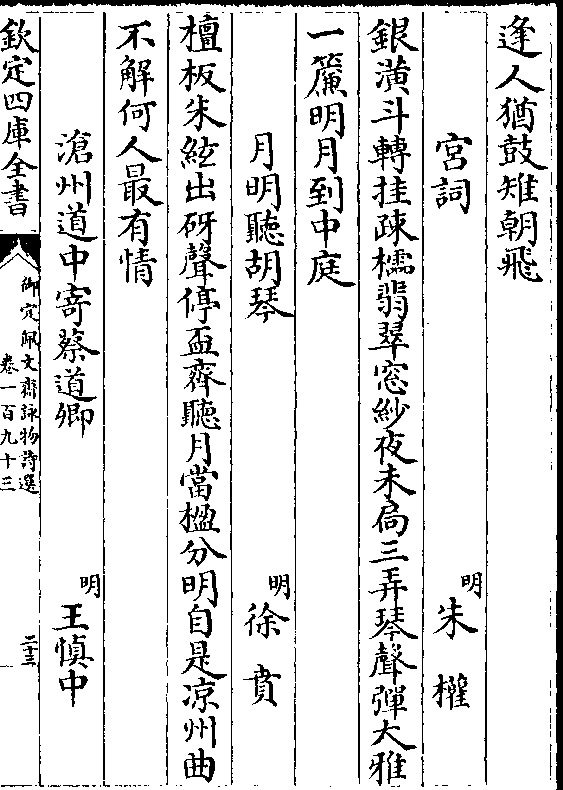 逢人猶鼓雉朝飛
宮詞 明 朱權
銀潢斗轉挂疎櫺翡翠窓紗夜未扃三弄琴聲彈大雅
一簾明月到中庭
月明聽胡琴 明 徐賁
檀板朱絃出砑聲停盃齊聽月當楹分明自是凉州曲
不解何人最有情
滄州道中寄蔡道卿 明 王慎中
欽定四庫全書
御定佩文齋詠物詩選
卷一百九十三
二十三